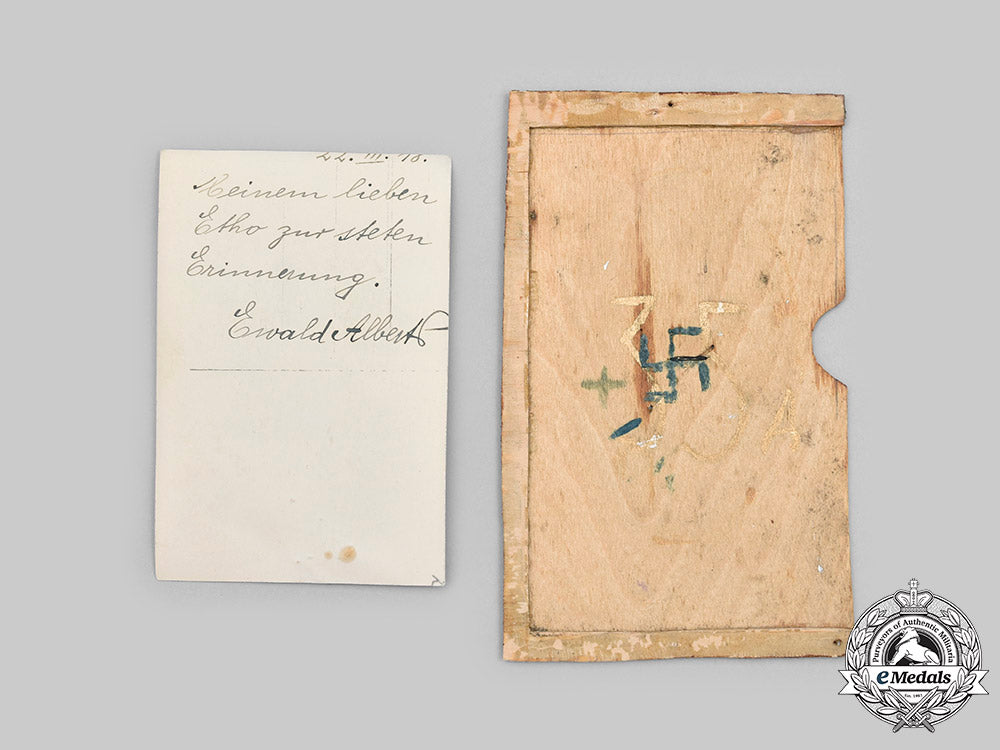 22. III. 18.
Meinem lieben
Etho zur steten
Erinnerung.
Ewald Alberts
A
Purveyors of Authentic Militaria
eMedals